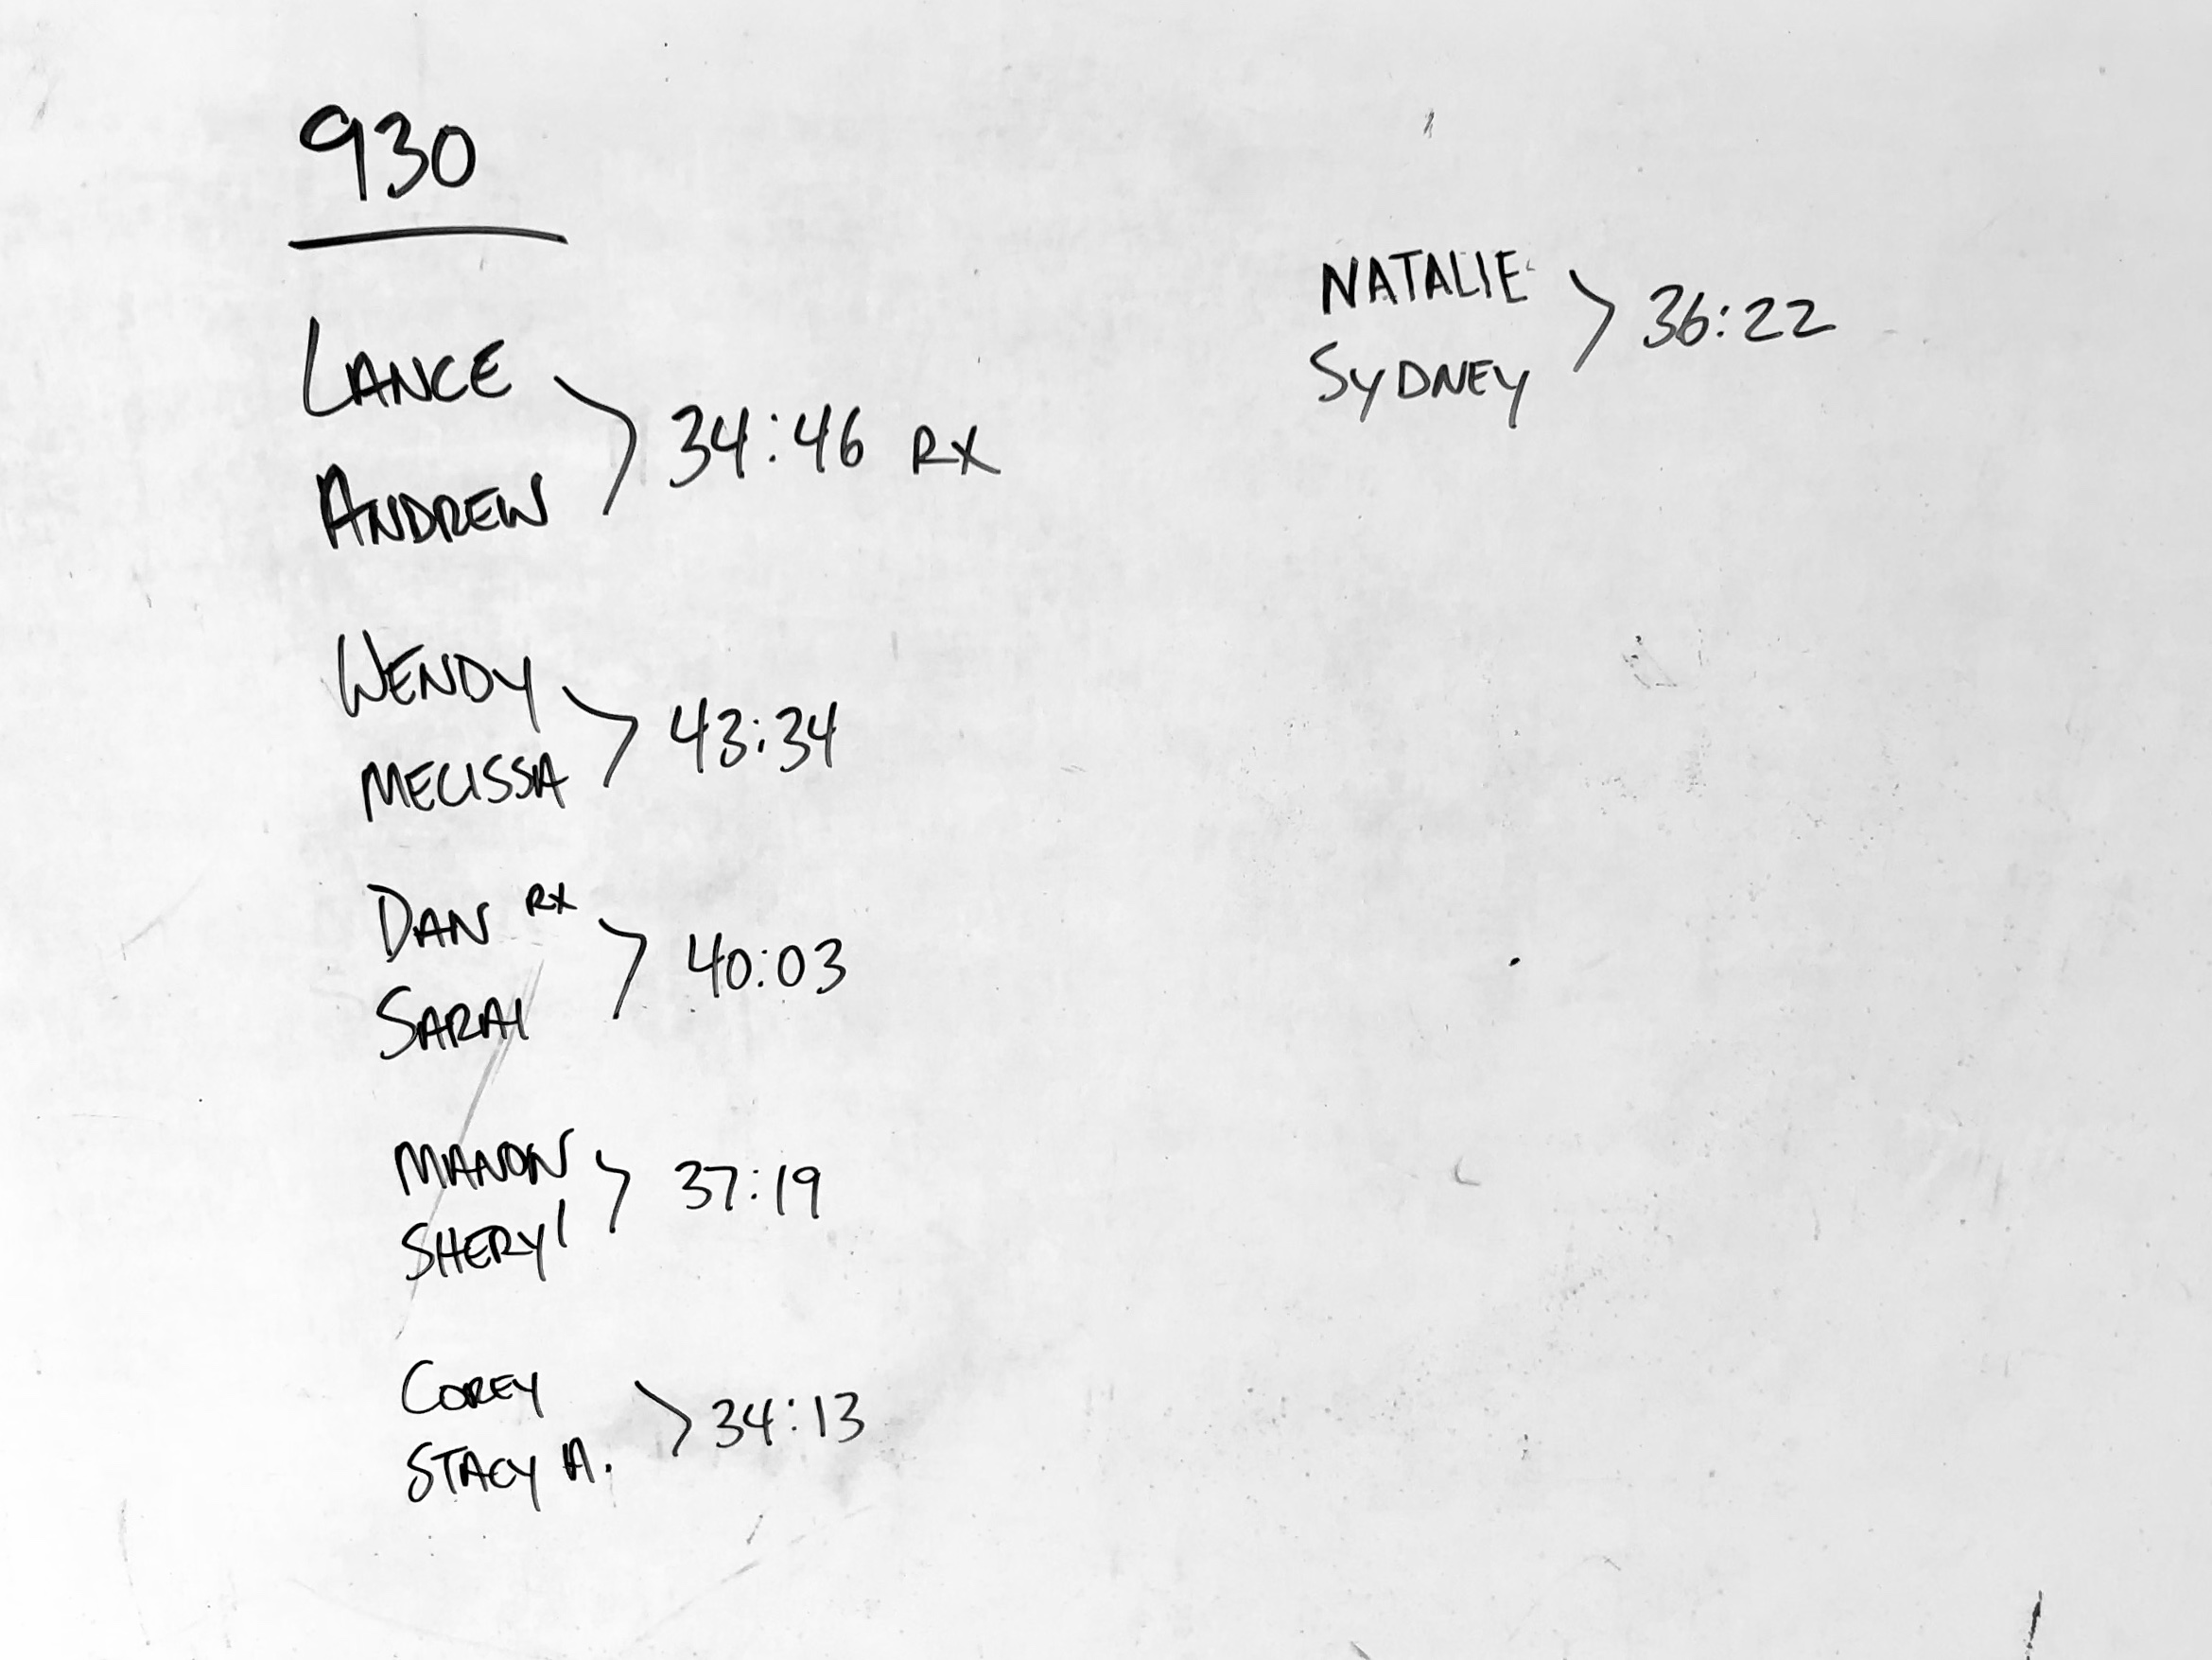 930
LANCE
ANDREW
34:46 RX
WENDY
MELISSA
43:34
DAN RX
SARAI
40:03
MANON
SHERYl
37:19
COREY
STACY A.
34:13
NATALIE
SYDNEY
36:22